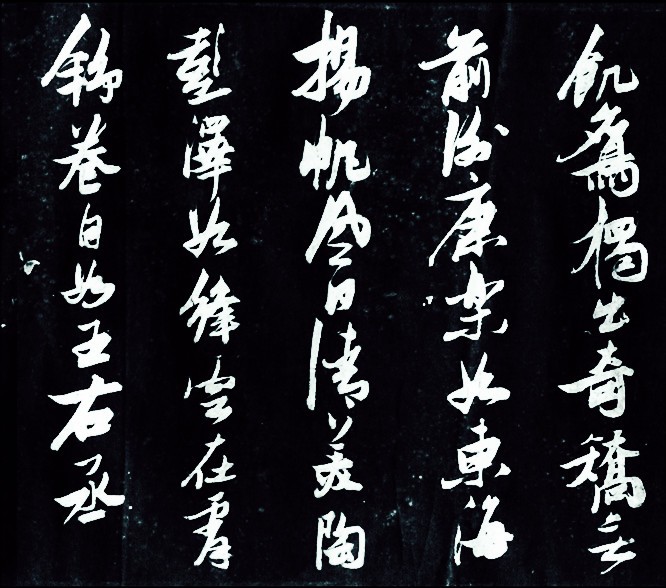 飢鷹獨出奇矯無
前謝康樂如東海
揚帆風日清美陶
彭澤如絳雲在霄
舒卷自如王右丞